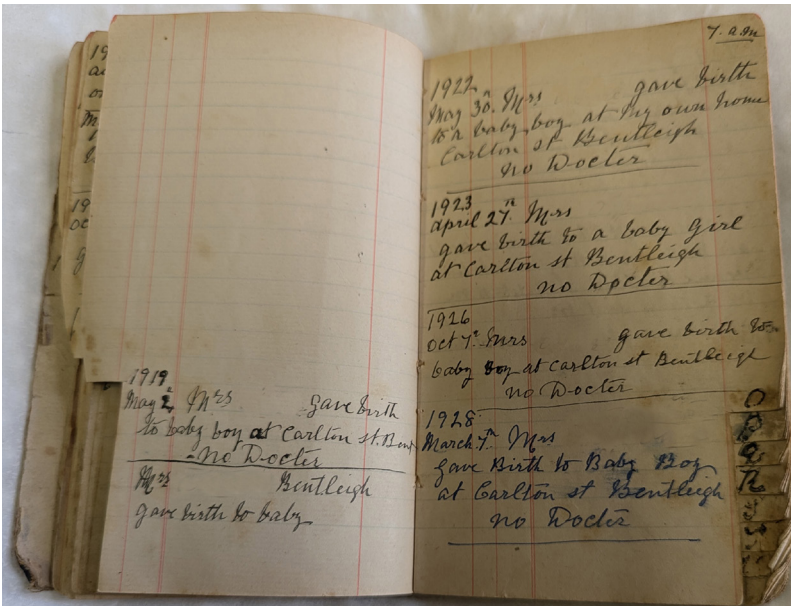 1919
May 2 Mrs gave birth
to baby boy at Carlton st. Bent
No Docter
Mrs Bentleigh
gave birth to baby
7. a.m
1922
May 30. Mrs gave birth
to a baby boy at my own home
Carlton st Bentleigh
no Docter
1923
april 27th Mrs
gave birth to a baby Girl
at Carlton st Bentleigh
no Docter
1926
Oct 7th Mrs gave birth to
baby boy at Carlton st Bentleigh
no Docter
1928
March 7th Mrs
gave Birth to Baby Boy
at Carlton st Bentleigh
no Docter
R